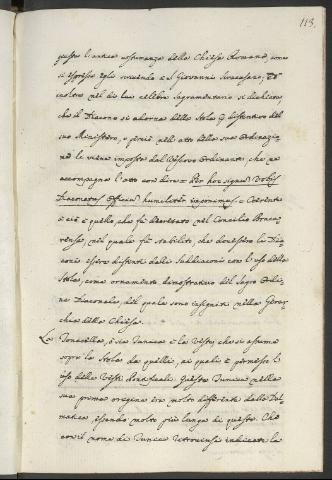 113.
questo l'antica costumanza della Chiesa Romana, come
si espresse egli scrivendo a Giovanni Siracusano; ed
inoltre nel di lui celebre Sagramentario si dichiara,
che il Diacono si adorna della Stola p. distintivo del
suo Ministero, e perciò nell'atto della sua Ordinazio
ne le viene imposta dal Vescovo Ordinante, che ac
compagna l'atto con dire = Per hoc signum Vobis
Diaconatus Officium humiliter imponimus = Coerente
a ciò è quello, che fù decretato nel Concilio Braca
rense, nel quale fù stabilito, che dovessero li Dia
coni essere distinti dalli Suddiaconi con l'uso della
Stola, come ornamento dimostrativo del Sagro Ordi
ne Diaconale, del quale sono insigniti nella Gerar
chia della Chiesa.
La Tonacella, ò sia Tunica è la Veste, che si assume
sopra la Stola da quelli, ai quali è permesso l'
uso delle Vesti Pontificali. Questa Tunica nella
sua prima origine era molto differente dalla Dal
matica, essendo molto più lunga di questa. Che
con il nome di Tunica intendesse indicare la